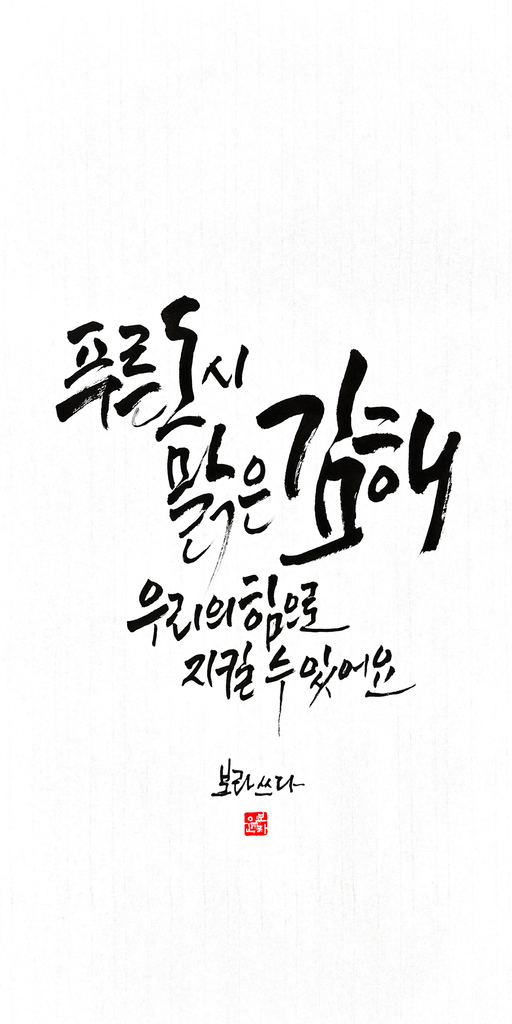 푸른 도시
맑은 김해
우리의 힘으로
지킬 수 있어요
보라 쓰다